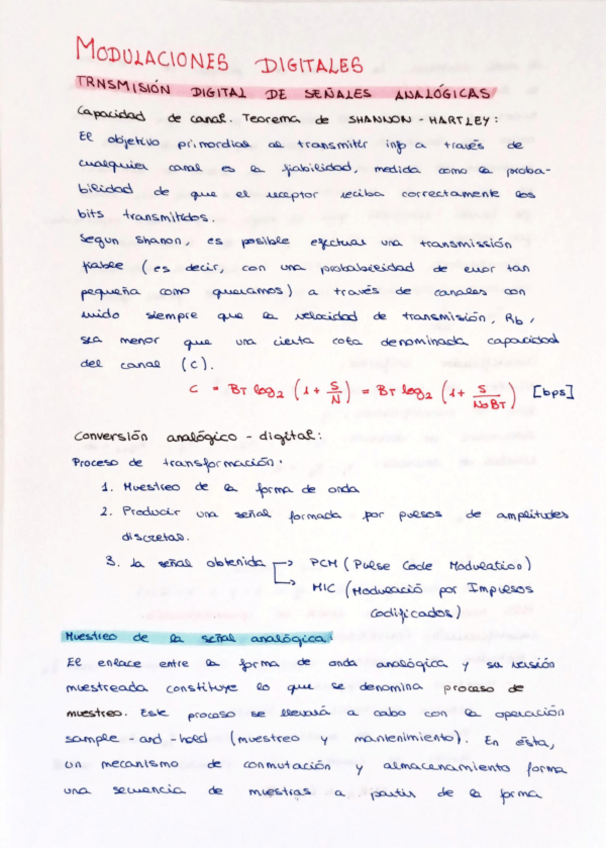 MODULACIONES DIGITALES
TRNSMISIÓN DIGITAL DE SEÑALES ANALÓGICAS
Capacidad de canal. Teorema de SHANNON - HARTLEY:
El objetivo primordial al transmitir info a través de
cualquier canal es la fiabilidad, medida como la proba-
bilidad de que el receptor reciba correctamente los
bits transmitidos.
Segun Shanon, es posible efectuar una transmissión
fiable (es decir, con una probabilidad de error tan
pequeña como queramos) a través de canales con
ruido siempre que la velocidad de transmisión, Rb,
sea menor que una cierta cota denominada capacidad
del canal (C).
C = BT log2 (1 + S/N) = BT log2 (1 + S/N0BT) [bps]
Conversión analógico - digital:
Proceso de transformación:
1. Muestreo de la forma de onda
2. Producir una señal formada por pulsos de amplitudes
discretas.
3. la señal obtenida → PCM (Pulse Code Modulation)
→ MIC (Modulació por Impulsos
Codificados)
Muestreo de la señal analógica:
El enlace entre la forma de onda analógica y su versión
muestreada constituye lo que se denomina proceso de
muestreo. Este proceso se llevará a cabo con la operación
sample - and - hold (muestreo y mantenimiento). En ésta,
un mecanismo de conmutación y almacenamiento forma
una secuencia de muestras a partir de la forma